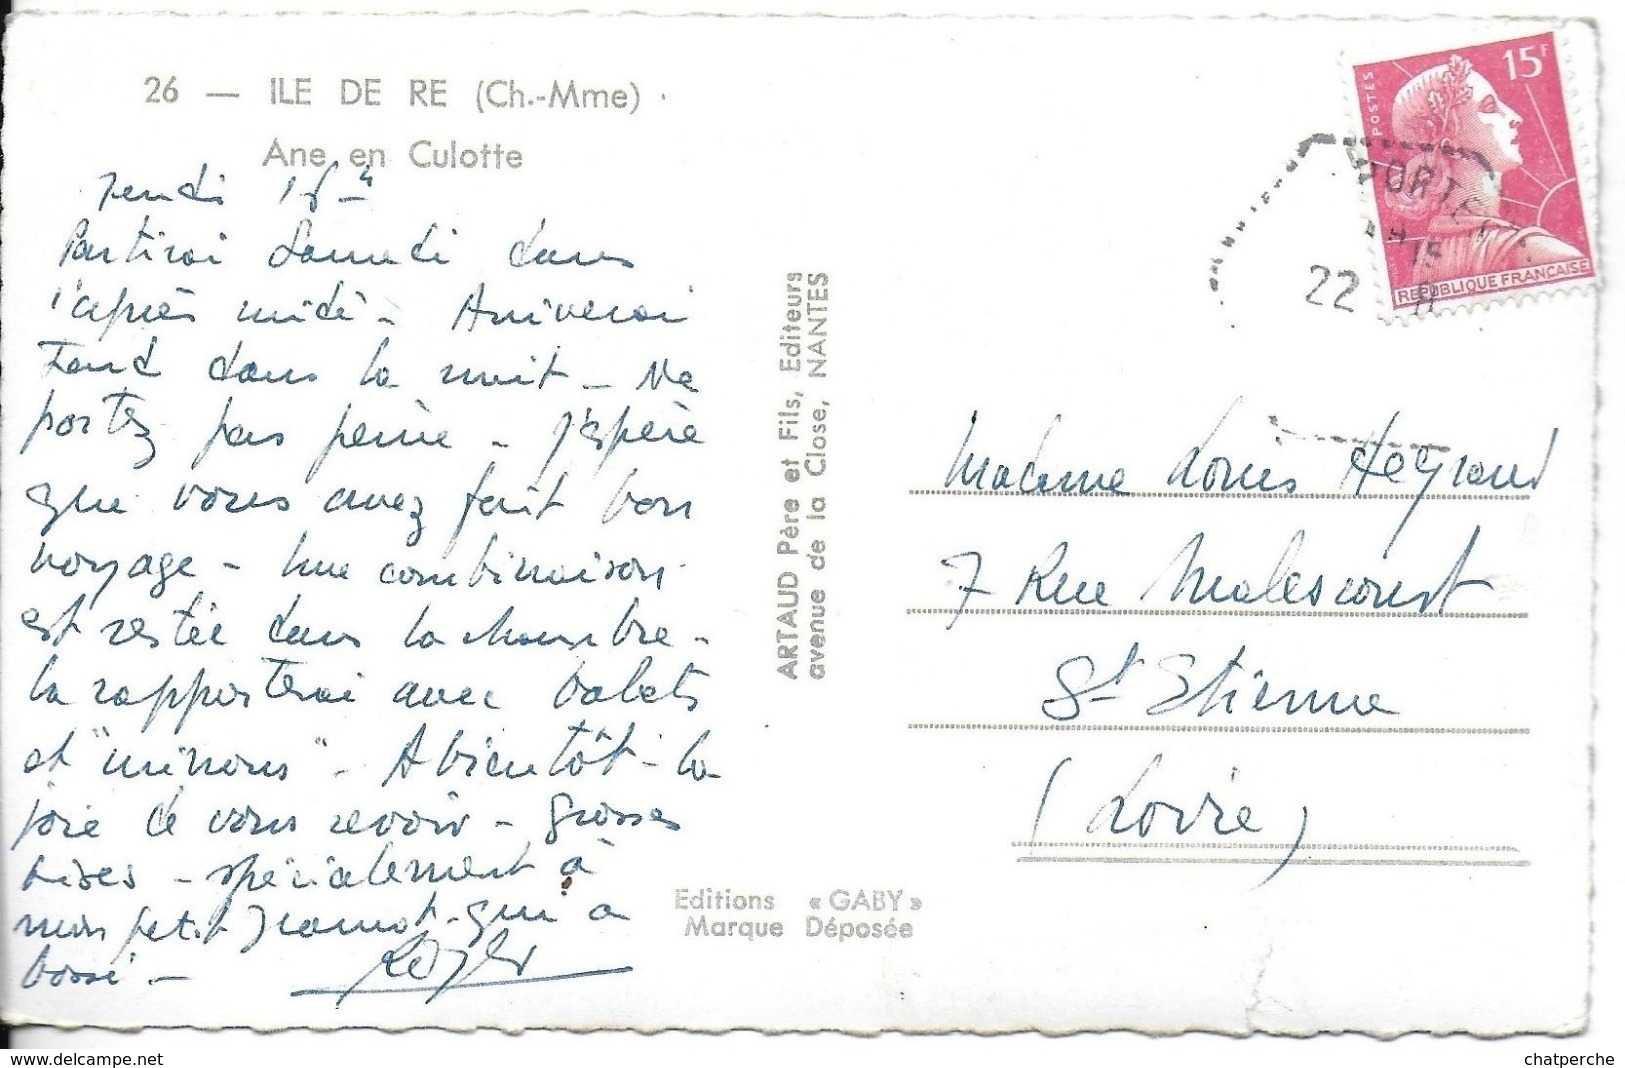 26 — ILE DE RE (Ch.-Mme)
Ane en Culotte
Jeudi
Partirai Samedi dans
l'après midi - Arriverai
Tard dans la nuit - Ne
portez pas peine - J'espère
que vous avez fait bon
voyage - Une combinaison
est restée dans la chambre -
la rapporterai avec
et " " - A bientôt - la
joie de vous revoir - grosses
bises - spécialement à
mon petit qui a
bossé -
Roger
ARTAUD Père et Fils, Editeurs
avenue de la Close, NANTES
Editions « GABY »
Marque Déposée
POSTES
15F
REPUBLIQUE FRANÇAISE
22
Madame Louis Heyraud
7 Rue Malescourt
St Etienne
(Loire)
chatperche